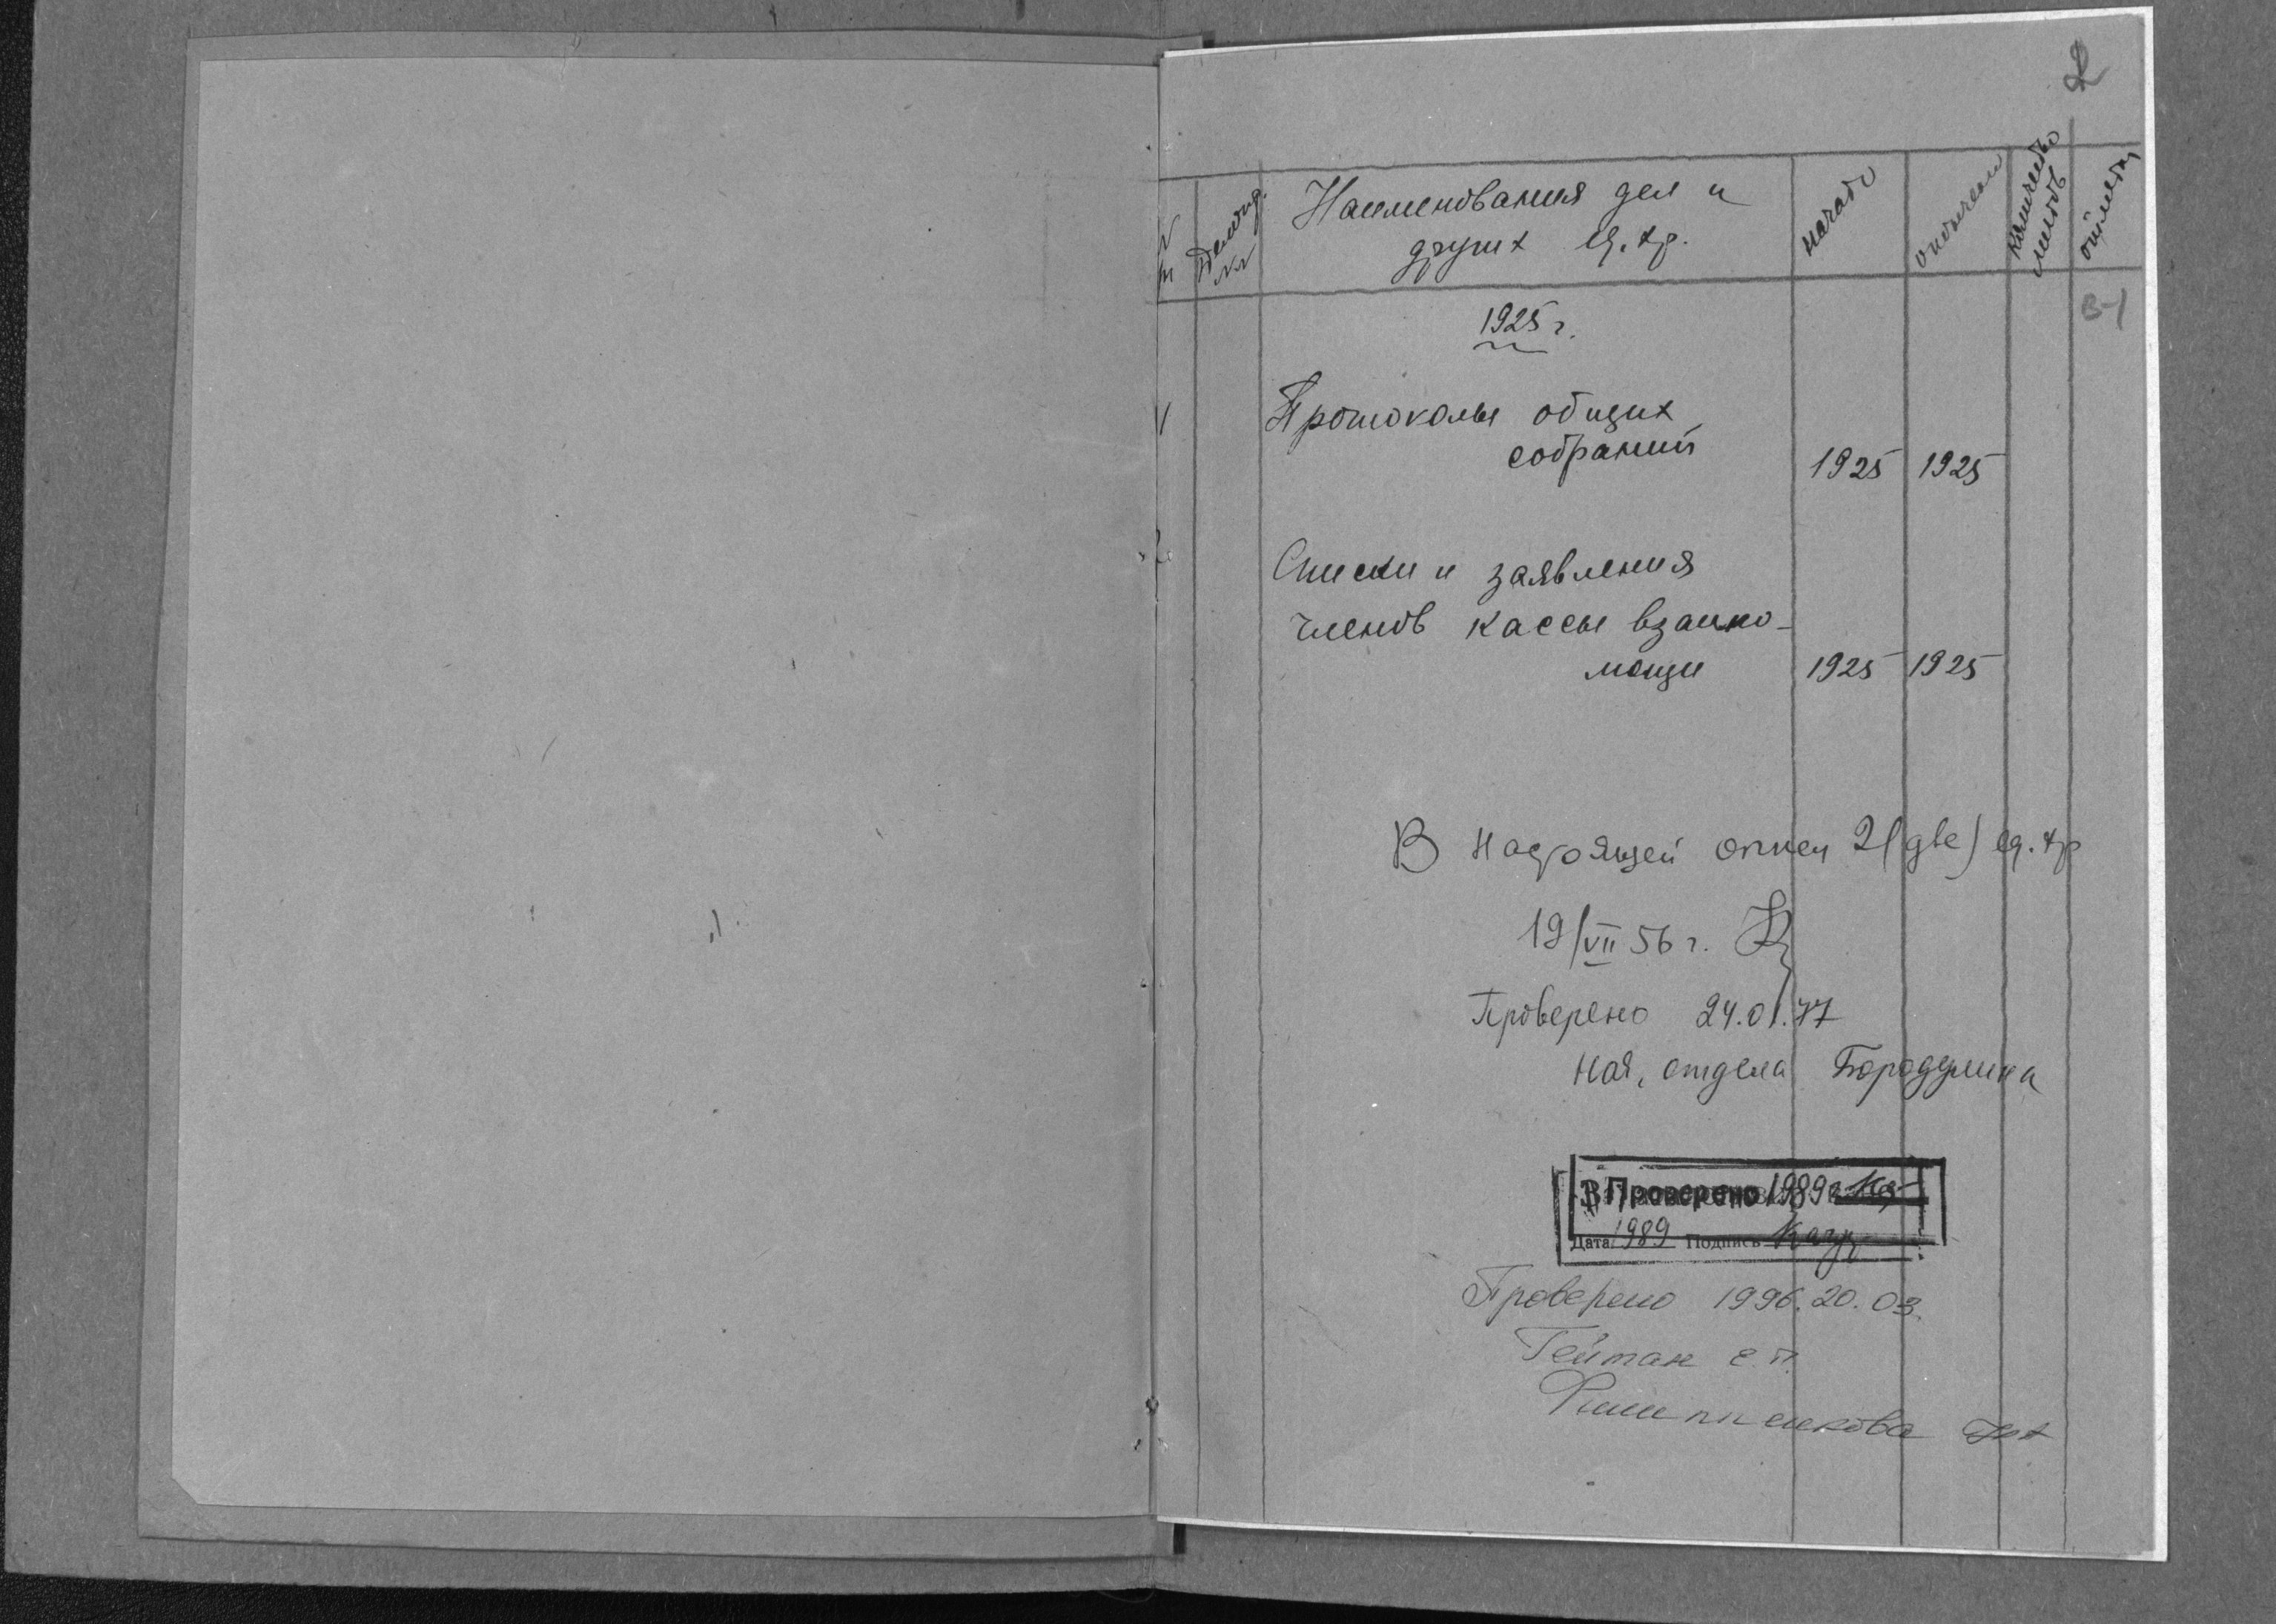 2
Наименования дел и
других ед. хр.
начато
окончено
количество
листов
отметки
В-1
1925 г.
1
Протоколы общих
собраний
1925 1925
2
Списки и заявления
членов кассы взаимо-
мощи
1925 1925
В настоящей описи 2 (две) ед. хр
19/VII 56 г.
Проверено 24.01.77
Нач. отдела Бородулина
Проверено 1989
Дата 1989 Подпись
Проверено 1996.20.03.
Гейтан Е.П.